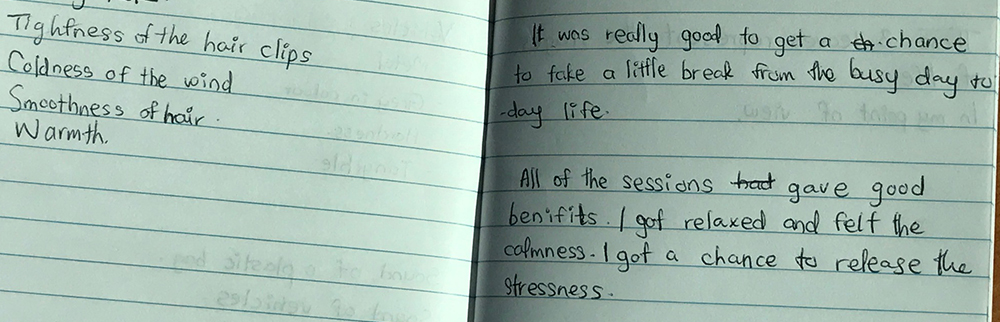 Tightness of the hair clips
Coldness of the wind
Smoothness of hair.
Warmth.
It was really good to get a chance
to take a little break from the busy day to
-day life.
All of the sessions had gave good
benifits. I got relaxed and felt the
calmness. I got a chance to release the
stressness.